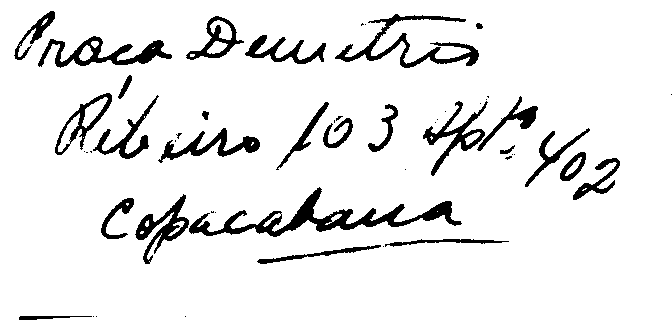 Praça Demetrio
Ribeiro 103 Apto. 402
Copacabana